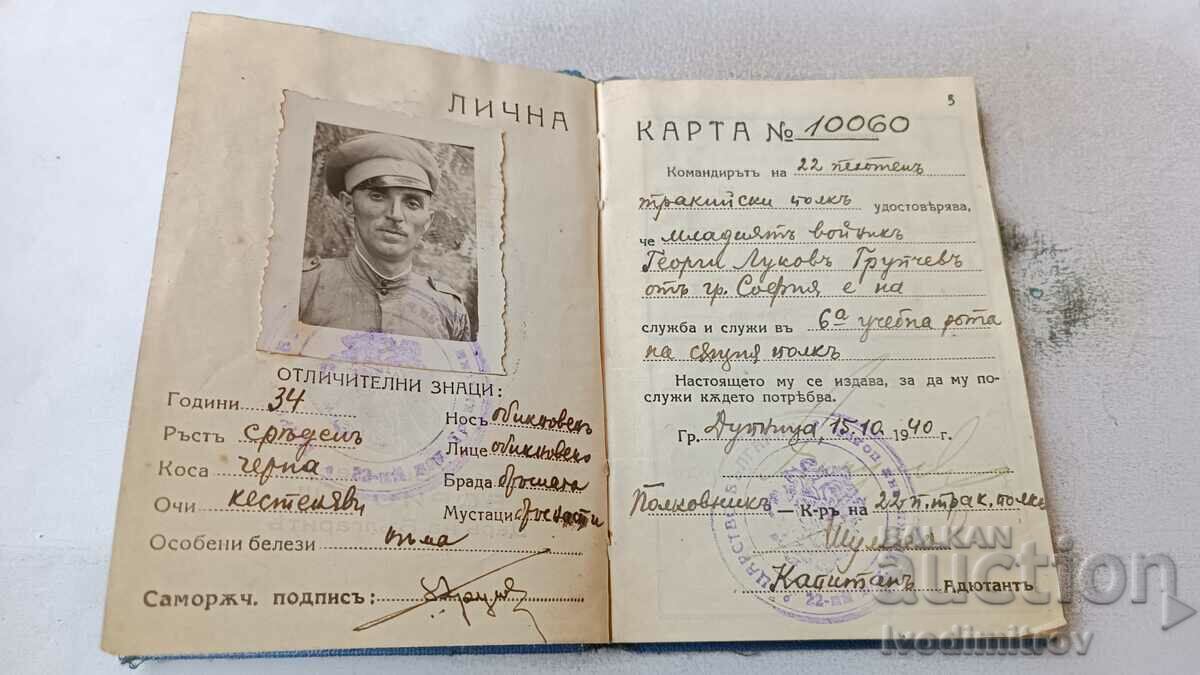 ЛИЧНА
ОТЛИЧИТЕЛНИ ЗНАЦИ:
Години 34
Ръстъ срѣденъ
Коса черна
Очи кестеняви
Особени белези нѣма
Саморѫч. подписъ:
Носъ обикновенъ
Лице обикновено
Брада бръсната
Мустаци
5
КАРТА № 10060
Командирътъ на 22 пехотенъ
тракийски полкъ удостовѣрява,
че младиятъ войникъ
Георги Луковъ Групчевъ
отъ гр. София е на
служба и служи въ 6а учебна рота
на сѫщия полкъ
Настоящето му се издава, за да му по-
служи кѫдето потрѣбва.
Гр. Дупница, 15.10 1940 г.
Полковникъ — К-ръ на 22 п. трак. полкъ
Капитанъ Адютантъ
BALKAN
auction
Ivodimitrov